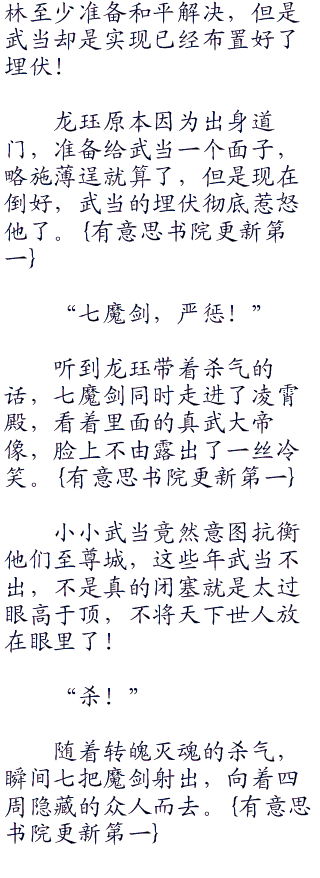 林至少准备和平解决，但是
武当却是实现已经布置好了
埋伏！
龙珏原本因为出身道
门，准备给武当一个面子，
略施薄逞就算了，但是现在
倒好，武当的埋伏彻底惹怒
他了。{有意思书院更新第
一}
“七魔剑，严惩！”
听到龙珏带着杀气的
话，七魔剑同时走进了凌霄
殿，看着里面的真武大帝
像，脸上不由露出了一丝冷
笑。{有意思书院更新第一}
小小武当竟然意图抗衡
他们至尊城，这些年武当不
出，不是真的闭塞就是太过
眼高于顶，不将天下世人放
在眼里了！
“杀！”
随着转魄灭魂的杀气，
瞬间七把魔剑射出，向着四
周隐藏的众人而去。{有意思
书院更新第一}